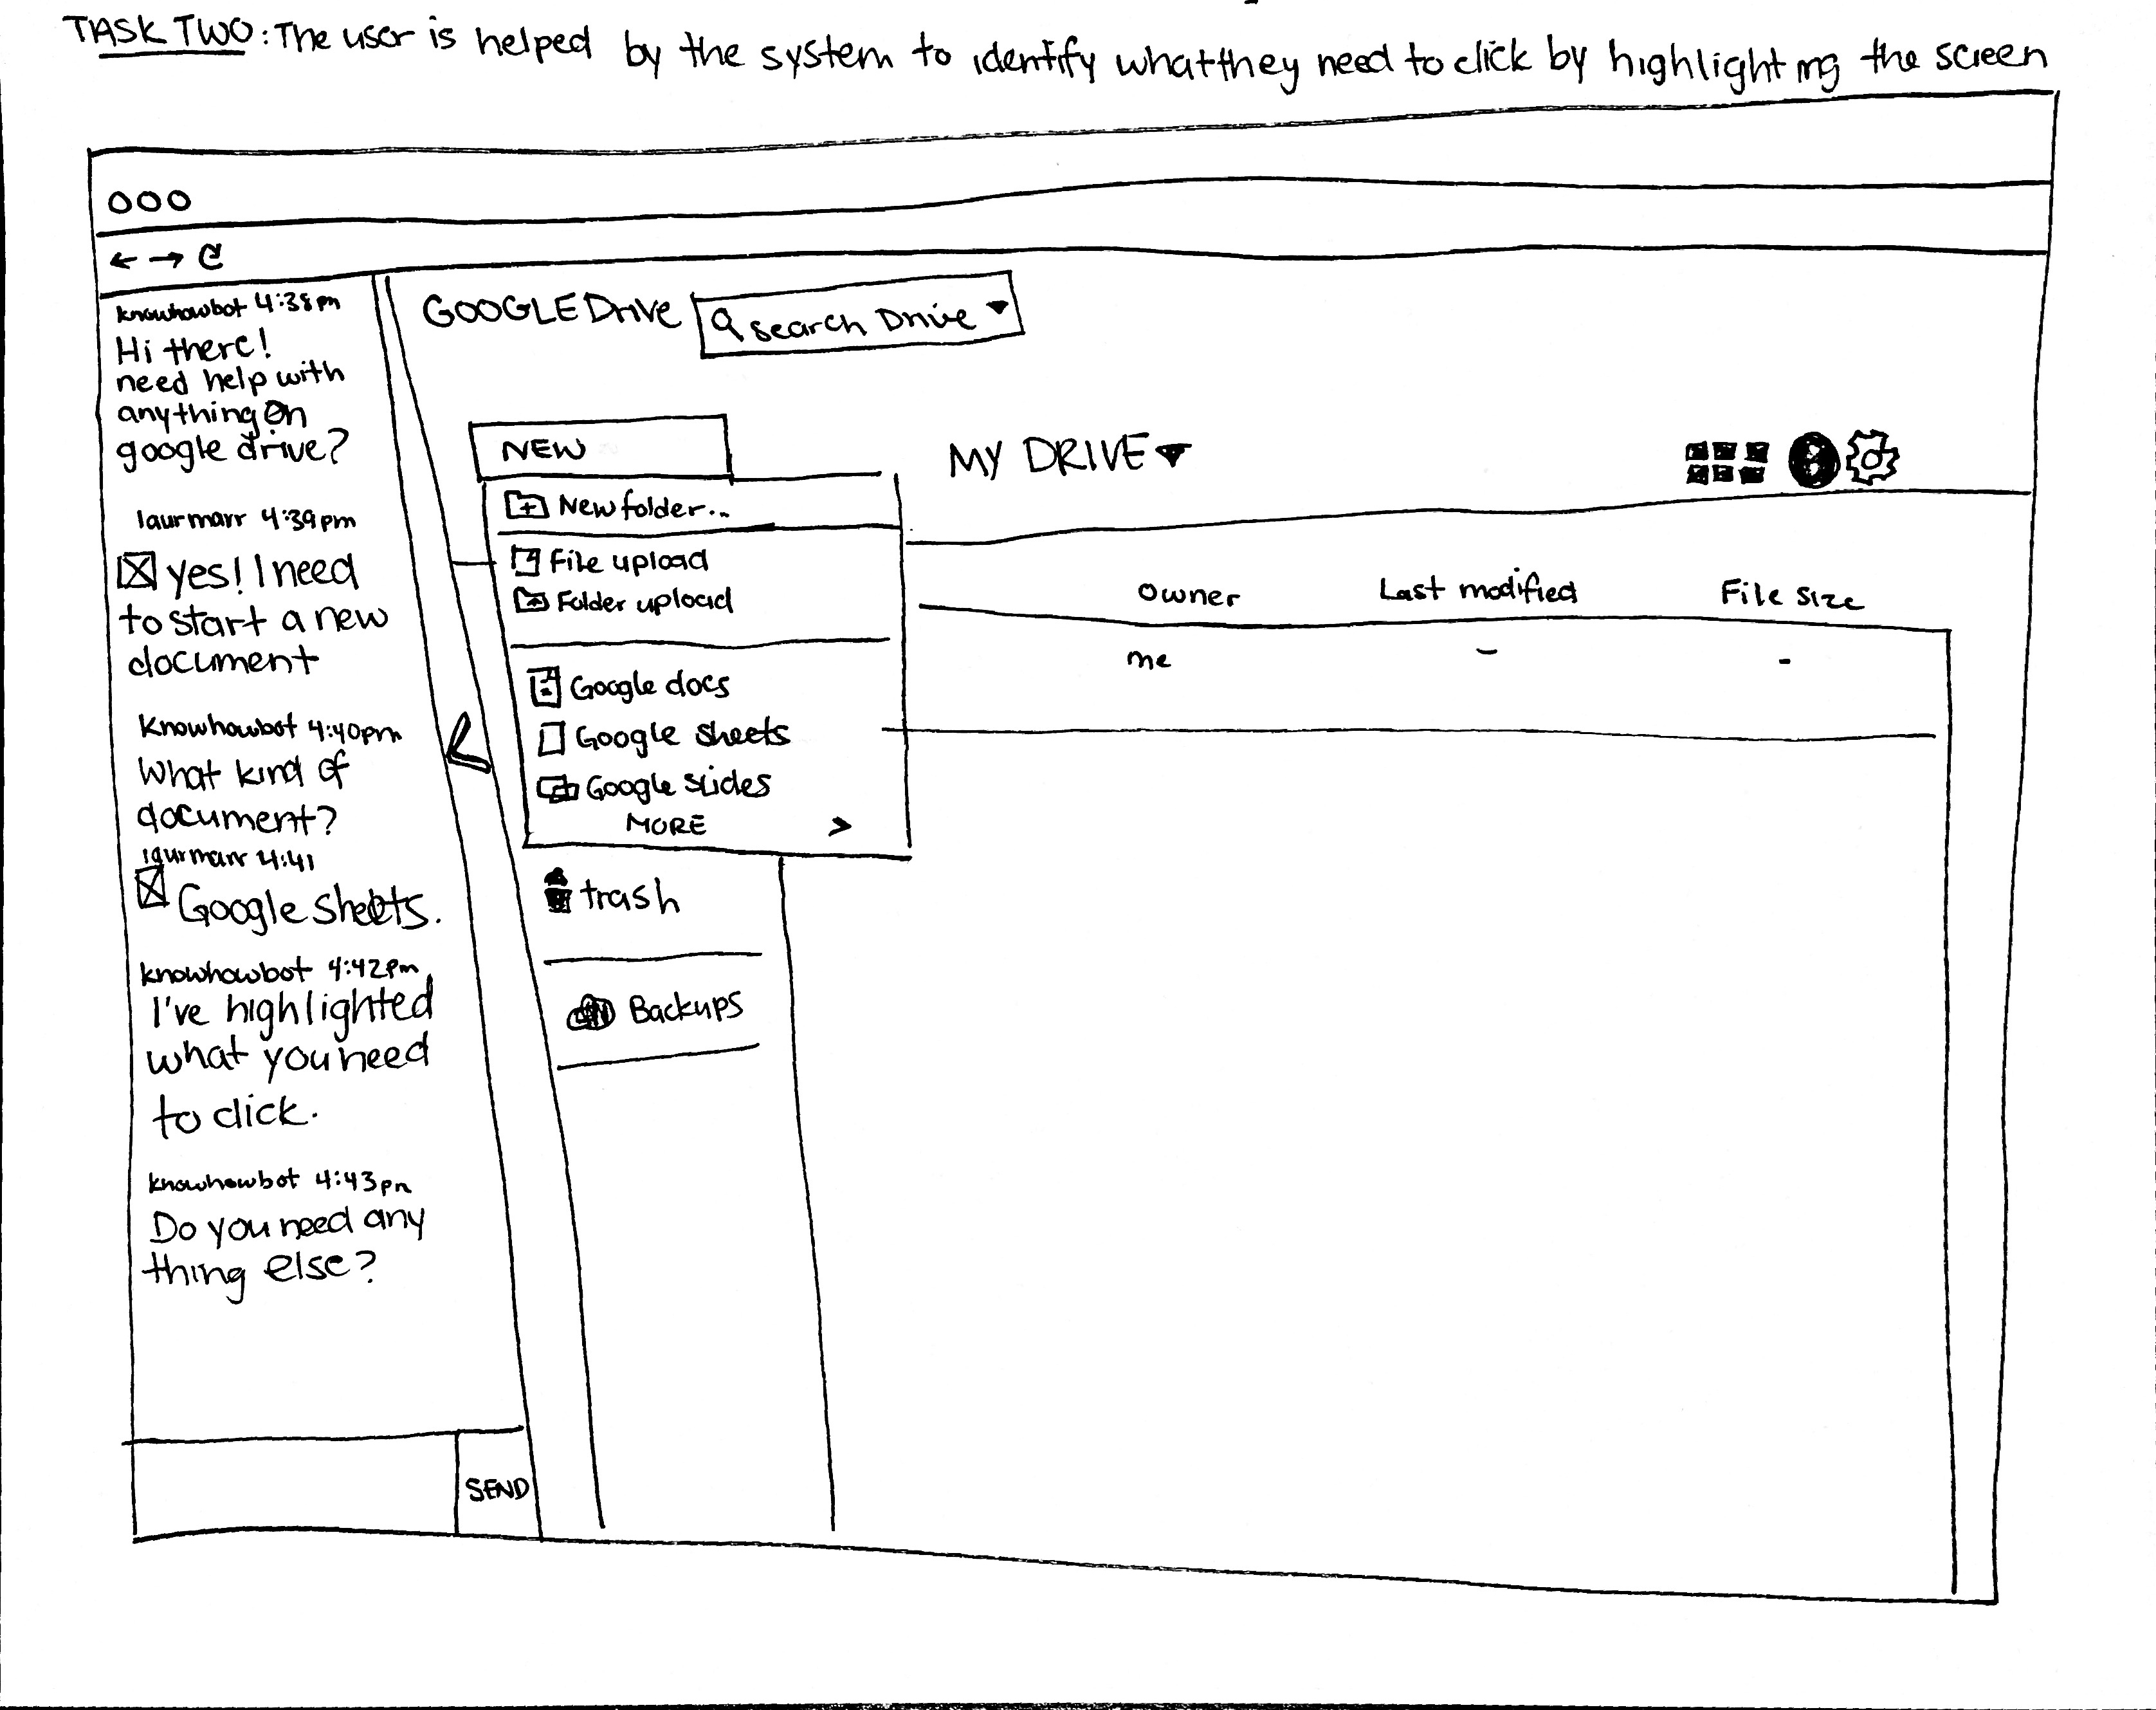 TASK TWO: The user is helped by the system to identify what they need to click by highlighting the screen
knowhowbot 4:38pm
Hi there!
need help with
anything on
google drive?
laurmarr 4:39pm
yes! I need
to start a new
document
Knowhowbot 4:40pm
What kind of
document?
laurmarr 4:41
Google sheets.
knowhowbot 4:42pm
I've highlighted
what you need
to click.
knowhowbot 4:43pm
Do you need any
thing else?
SEND
GOOGLE Drive
search Drive
NEW
New folder...
File upload
Folder upload
Google docs
Google sheets
Google slides
MORE >
trash
Backups
MY DRIVE
Owner Last modified File size
me - -